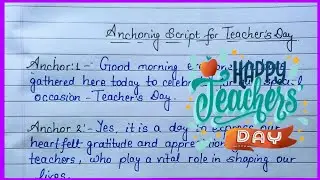 Anchoring Script for Teacher's Day
Anchor:1 - Good morning
gathered here today to celebr
occasion - Teacher's Day.
Anchor 2:- Yes, it is a day
heartfelt gratitude and appre
teachers, who play a vital role in shaping our
lives.
HAPPY
Teachers
DAY